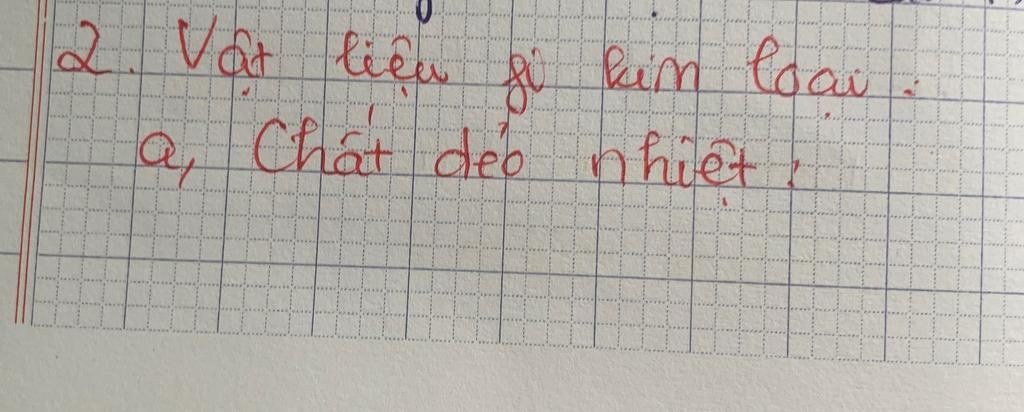 2. Vật liệu gi kim loại.
a, Chất dẻo nhiệt: